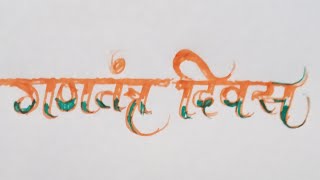 गणतंत्र दिवस